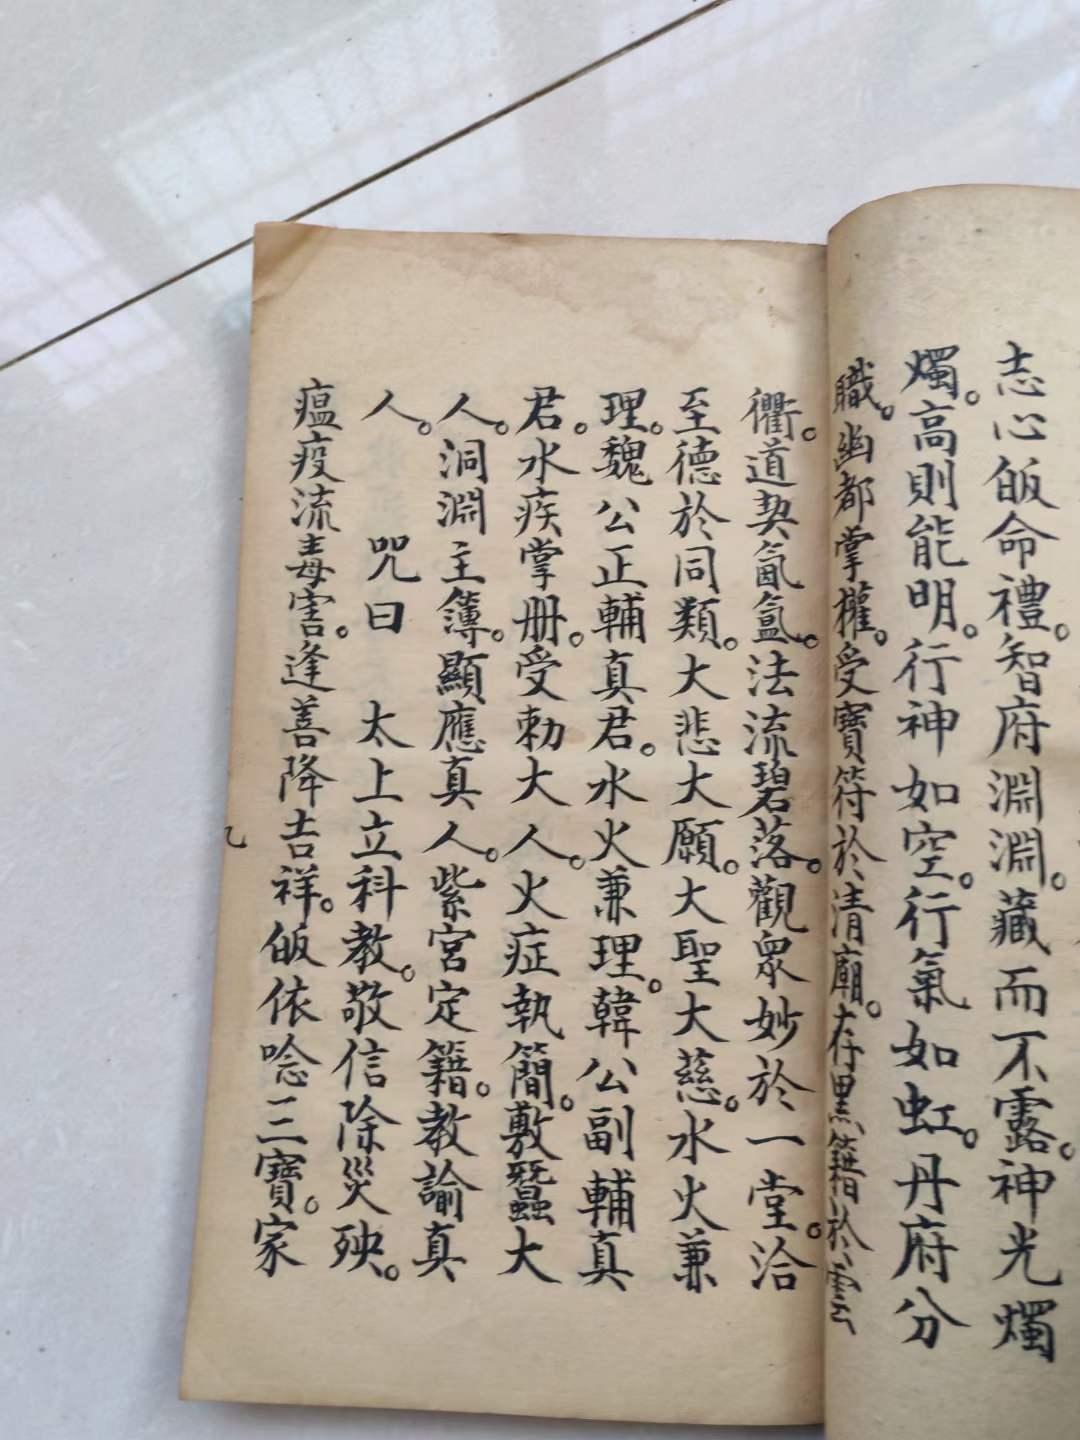 志心皈命禮。智府淵淵。藏而不露。神光燭
燭。高則能明。行神如空。行氣如虹。丹府分
職。幽都掌權。受寶符於清廟。存黑籍於雲
衢。道契氤氳。法流碧落。觀眾妙於一堂。洽
至德於同類。大悲大願。大聖大慈。水火兼
理。魏公正輔真君。水火兼理。韓公副輔真
君。水疾掌册。受勅大人。火症執簡。敷蠶大
人。洞淵主簿。顯應真人。紫宮定籍。教諭真
人。 咒曰 太上立科教。敬信除災殃。
瘟疫流毒害。逢善降吉祥。皈依唸三寶。家
九